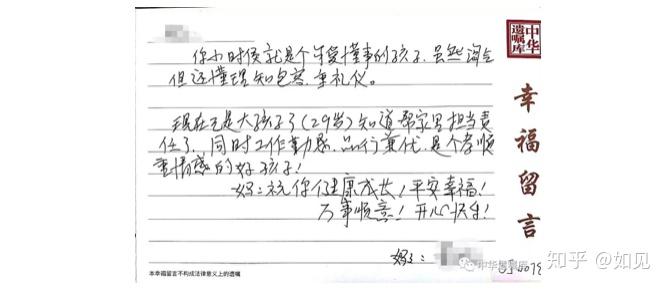 你小时候就是个可爱懂事的孩子。虽然淘气
但还懂理知包容、重礼仪。
现在已是大孩子了(29岁)知道帮家里担当责
任了。同时工作勤恳、品行兼优、是个孝顺
重情感的好孩子!
妈:祝你们健康成长!平安幸福!
万事顺意!开心快乐!
妈:
本幸福留言不构成法律意义上的遗嘱
中华
遗嘱库
幸福留言
中华遗嘱库
知乎 @如见